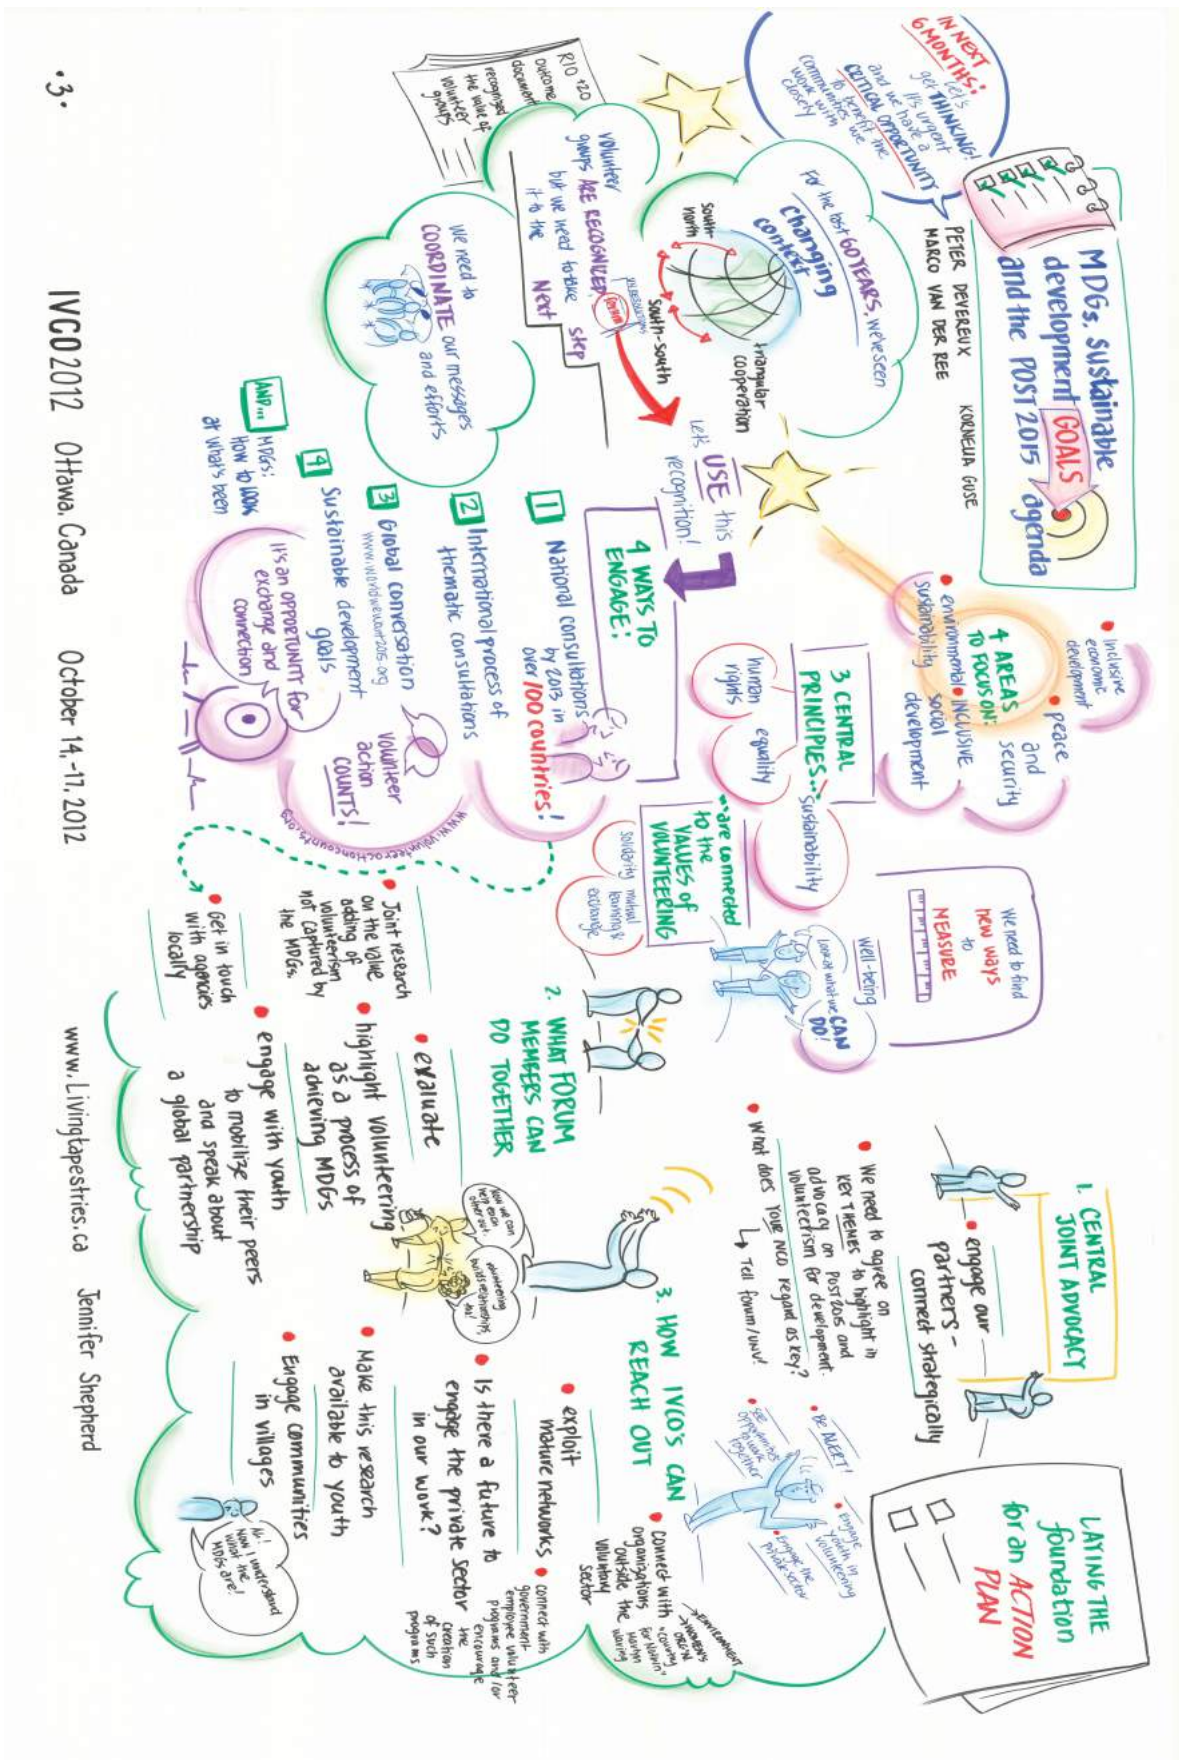 MDGs, sustainable
development GOALS
and the POST 2015 agenda
PETER DEVEREUX
MARCO VAN DER REE
KORNELIA GUSE
IN NEXT
6 MONTHS:
Let's
get THINKING!
It's urgent
and we have a
CRITICAL OPPORTUNITY
to benefit the
communities we
work with
closely
For the last 60 YEARS, we've seen
Changing
context
South-
north
South-south
triangular
cooperation
RIO +20
outcome
document
recognized
the value of
volunteer
groups
volunteer
groups ARE RECOGNIZED,
but we need to take
it to the
Next
step
We need to
COORDINATE our messages
and efforts
Let's
USE this
recognition!
4 AREAS
TO FOCUS ON:
• Inclusive
economic
development
• peace
and
security
• environmental
sustainability
• INCLUSIVE
social
development
3 CENTRAL
PRINCIPLES...
human
rights
equality
sustainability
...are connected
to the
VALUES of
VOLUNTEERING
solidarity
mutual
learning &
exchange
We need to find
new ways
to
MEASURE
well-being
Look at what we CAN
DO!
4 WAYS TO
ENGAGE:
1 National consultations
by 2013 in
over 100 countries!
2 International process of
thematic consultations
3 Global conversation
www.worldwewant2015.org
4 Sustainable development
goals
AND...
MDGs:
HOW to LOOK
at what's been
It's an OPPORTUNITY for
exchange and
connection
volunteer
action
COUNTS!
www.volunteeractioncounts.org
LAYING THE
foundation
for an ACTION
PLAN
1. CENTRAL
JOINT ADVOCACY
• engage our
partners -
connect strategically
• We need to agree on
KEY THEMES to highlight in
advocacy on POST 2015 and
volunteerism for development.
• What does YOUR NCO regard as key?
↳ Tell forum/UNV!
• BE ALERT!
• see
opportunities
to work
together
• Engage
youth in
volunteering
• Engage the
private sector
2. WHAT FORUM
MEMBERS CAN
DO TOGETHER
• evaluate
• highlight volunteering
as a process of
achieving MDGs
• engage with youth
to mobilize their peers
and speak about
a global partnership
• Joint research
on the value
adding of
volunteerism
not captured by
the MDGs.
• Get in touch
with agencies
locally
Now we can
help each
other out.
volunteering
builds relationships,
too!
3. HOW IVCO'S CAN
REACH OUT
• exploit
mature networks
• Is there a future to
engage the private sector
in our work?
• Make this research
available to youth
• Engage communities
in villages
• connect with
organisations
outside the
voluntary
sector
→ ENVIRONMENT
→ WOMEN'S
ORG'N
• connect with
government
employee volunteer
programs and/or
encourage
the
creation
of such
programs
Ah!
Now I understand
what the
MDGs are!
•3•
IVCO 2012 Ottawa, Canada October 14-17, 2012
www.Livingtapestries.ca Jennifer Shepherd